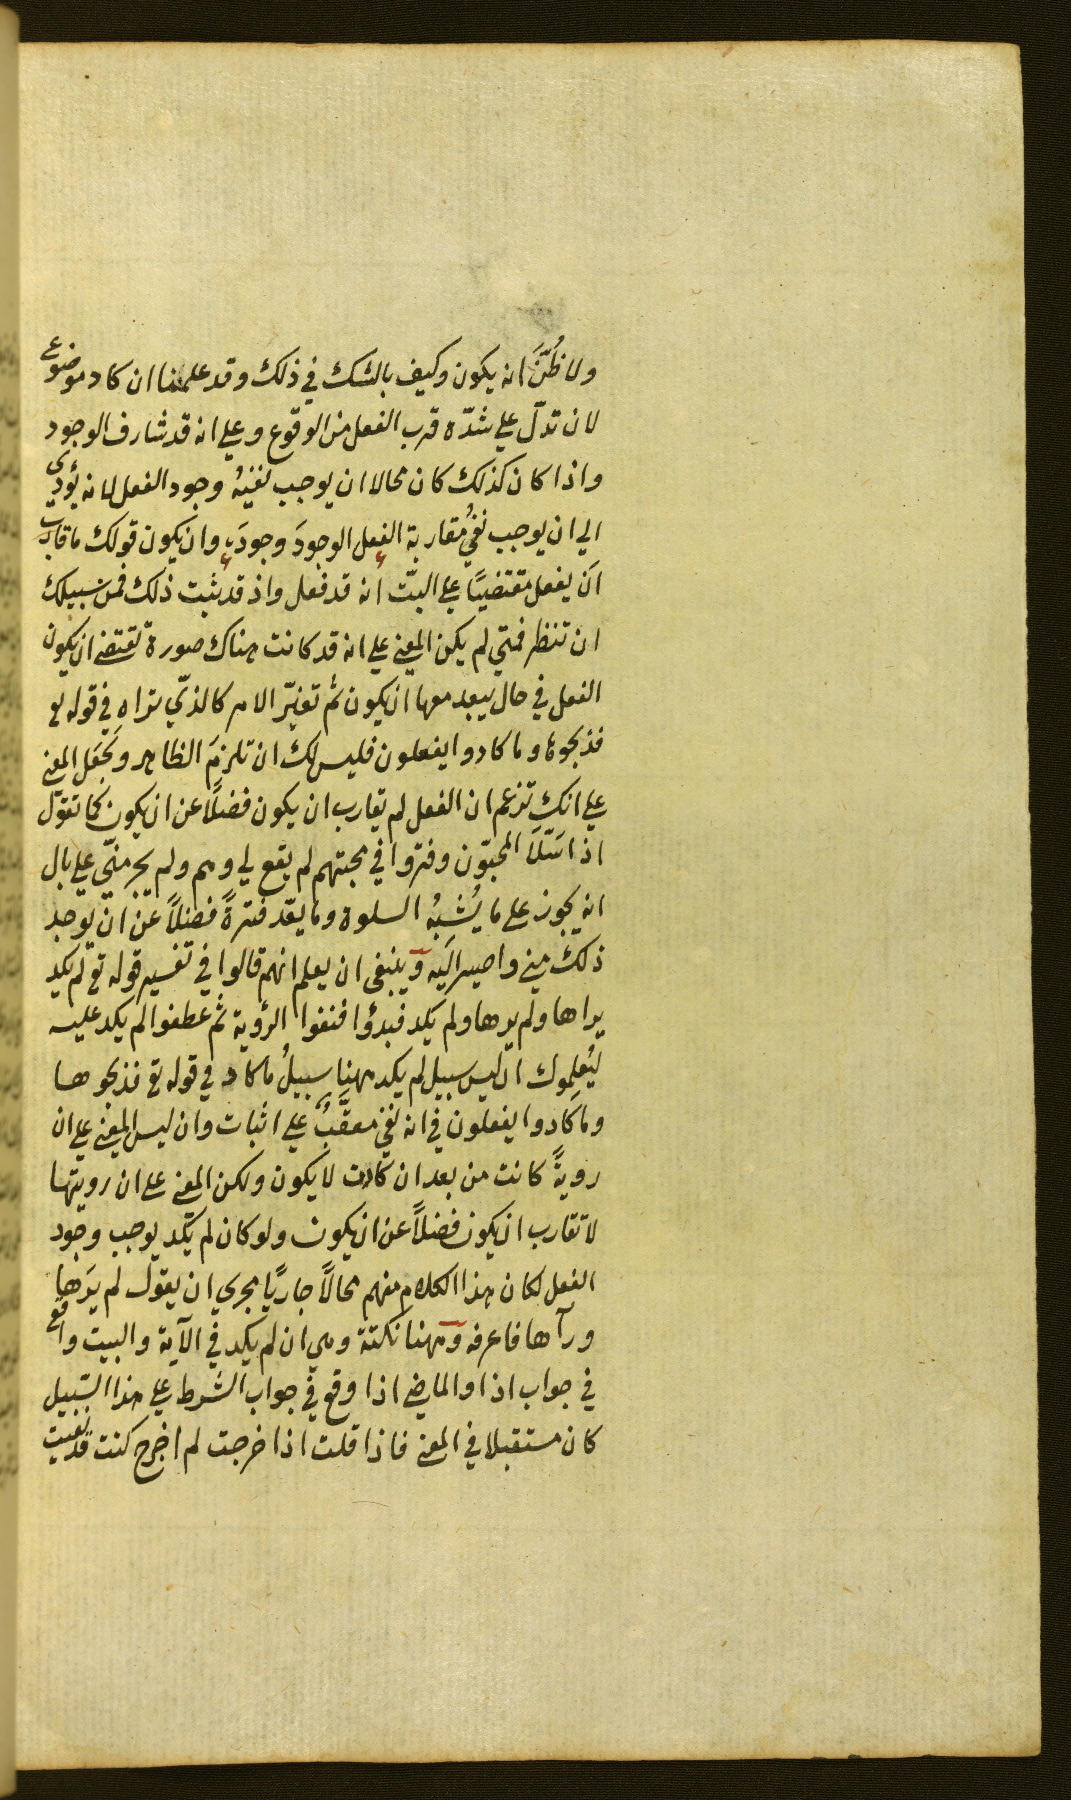 ولا ظُنَّ انه يكون وكيف بالشك في ذلك وقد علمنا ان كاد موضوع
لان تدلّ علي شدّه قرب الفعل من الوقوع وعلي انه قد شارف الوجود
واذا كان كذلك كان محالا ان يوجب نفيُه وجود الفعل لانه يؤدي
الي ان يوجب نفيُ مقاربة الفعل الوجودَ وجودَه وان يكون قولك ما قارب
اَن يفعل مقتضيًا علي البتّ انه قد فعل واذ قد ثبت ذلك فمن سبيلك
ان تنظر فمتي لم يكن المعني علي انه قد كانت هناك صورة تقتضي ان لا يكون
الفعل في حال يبعد معها ان يكون ثم تغيّر الامر كالذي تراه في قوله تع
فذبحوها وما كادوا يفعلون فليس لك ان تلزمَ الظاهر وتجعَل المعني
علي انك تزعم ان الفعل لم يقارب ان يكون فضلًا عن ان يكون كما تقول
اذا سَلَا المحبّون وفتروا في محبتهم لم يقع لي وهم ولم يجر منّي علي بال
انه يجوز علي ما يُشبهُ السلوة وما يعدّ فترةً فضلًا عن ان يوجد
ذلك مني واصير اليه وينبغي ان يعلم انهم قالوا في تفسير قوله تع لم يكد
يراها ولم يرها ولم يكد فبدؤا فنفوا الرؤية ثم عطفوا لم يكد عليه
ليُعلِموك ان ليس سبيل لم يكد ههنا سبيلُ ما كاد في قوله تع فذبحوها
وما كادوا يفعلون في انه نفي معقَّبٌ علي اثبات وان ليس المعني علي ان
رويةً كانت من بعد ان كادت لا يكون ولكن المعني علي ان رويتها
لا تقارب ان يكون فضلًا عن ان يكون ولو كان لم يكد يوجب وجود
الفعل لكان هذا الكلام منهم محالًا جاريًا مجري ان يقول لم يَرَها
ورآها فاعرفه وههنا نكتة وهي ان لم يكد في الآية والبيت واقع
في جواب اذا والماضي اذا وقع في جواب الشرط علي هذا السّبيل
كان مستقبلا في المعني فاذا قلت اذا خرجت لم اخرج كنت قد نفيت